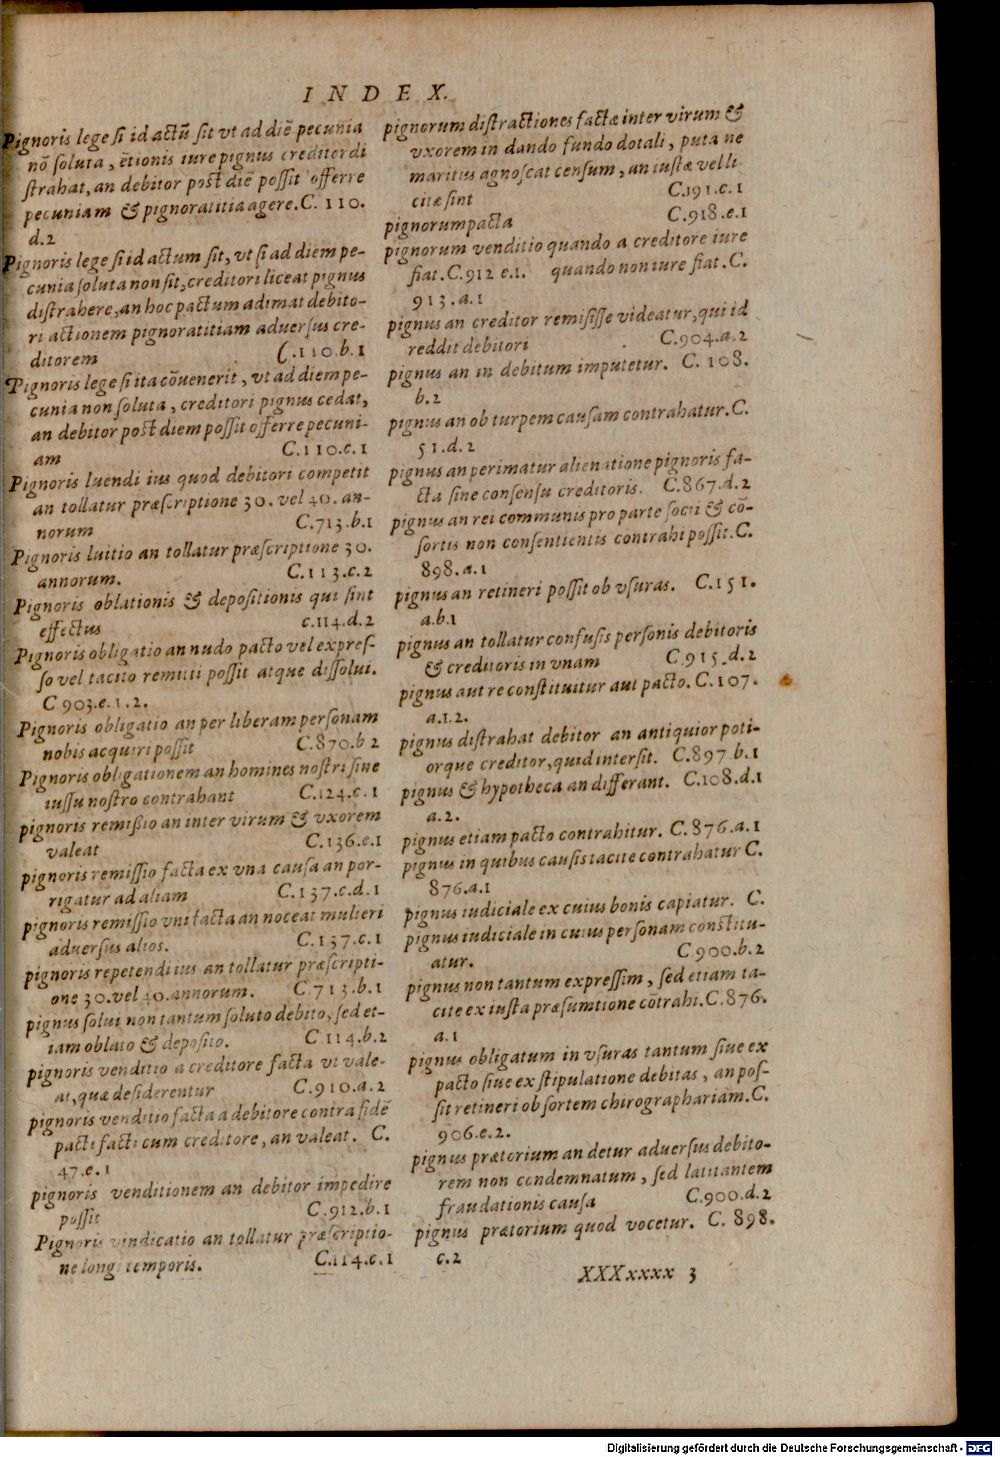 INDEX.
Pignoris lege si id actū sit vt ad diē pecunia
nō soluta, ētionis iure pignus creditor di
strahat, an debitor post diē possit offerre
pecuniam & pignoratitia agere. C. 110.
d.2
Pignoris lege si id actum sit, vt si ad diem pe-
cunia soluta non sit, creditori liceat pignus
distrahere, an hoc pactum adimat debito-
ri actionem pignoratitiam aduersus cre-
ditorem C.110.b.1
Pignoris lege si ita cōuenerit, vt ad diem pe-
cunia non soluta, creditori pignus cedat,
an debitor post diem possit offerre pecuni-
am C.110.c.1
Pignoris luendi ius quod debitori competit
an tollatur præscriptione 30. vel 40. an-
norum C.713.b.1
Pignoris luitio an tollatur præscriptione 30.
annorum. C.113.c.2
Pignoris oblationis & depositionis qui sint
effectus c.114.d.2
Pignoris obligatio an nudo pacto vel expres-
so vel tacito remitti possit atque dissolui.
C 903.e.1.2.
Pignoris obligatio an per liberam personam
nobis acquiri possit C.870.b 2
Pignoris obligationem an homines nostri sine
iussu nostro contrahant C.124.c.1
pignoris remißio an inter virum & vxorem
valeat C.136.e.1
pignoris remissio facta ex vna causa an por-
rigatur ad aliam C.137.c.d.1
pignoris remissio vni facta an noceat mulieri
aduersus alios. C.137.c.1
pignoris repetendi ius an tollatur præscripti-
one 30.vel 40.annorum. C.713.b.1
pignus solui non tantum soluto debito, sed et-
iam oblato & deposito. C 114.b.2
pignoris venditio a creditore facta vt vale-
at, quæ desiderentur C.910.a.2
pignoris venditio facta a debitore contra fidē
pacti facti cum creditore, an valeat. C.
47.e.1
pignoris venditionem an debitor impedire
possit C.912.b.1
Pignoris vindicatio an tollatur præscriptio-
ne longi temporis. C.114.c.1
pignorum distractiones factæ inter virum &
vxorem in dando fundo dotali, puta ne
maritus agnoscat censum, an iustæ vel li
citæ sint C.191.c.1
pignorum pacta C.918.e.1
pignorum venditio quando a creditore iure
fiat. C.912 e.1. quando non iure fiat. C.
913.a.1
pignus an creditor remisisse videatur, qui id
reddit debitori C.904.a.2
pignus an in debitum imputetur. C. 108.
b.2
pignus an ob turpem causam contrahatur. C.
51.d.2
pignus an perimatur alienatione pignoris fa-
cta sine consensu creditoris. C.867.d.2
pignus an rei communis pro parte socii & cō-
sortis non consentientis contrahi possit. C.
898.a.1
pignus an retineri possit ob vsuras. C.151.
a.b.1
pignus an tollatur confusis personis debitoris
& creditoris in vnam C.915.d.2
pignus aut re constituitur aut pacto. C.107.
a.1.2.
pignus distrahat debitor an antiquior poti-
orque creditor, quid intersit. C.897.b.1
pignus & hypotheca an differant. C.108.d.1
a.2.
pignus etiam pacto contrahitur. C.876.a.1
pignus in quibus causis tacite contrahatur C.
876.a.1
pignus iudiciale ex cuius bonis capiatur. C.
pignus iudiciale in cuius personam constitu-
atur. C 900.b.2
pignus non tantum expressim, sed etiam ta-
cite ex iusta præsumtione cōtrahi. C.876.
a.1
pignus obligatum in vsuras tantum siue ex
pacto siue ex stipulatione debitas, an pos-
sit retineri ob sortem chirographariam. C.
906.e.2.
pignus prætorium an detur aduersus debito-
rem non condemnatum, sed latitantem
fraudationis causa C.900.d.2
pignus prætorium quod vocetur. C. 898.
c.2
XXXxxxx 3
Digitalisierung gefördert durch die Deutsche Forschungsgemeinschaft - DFG